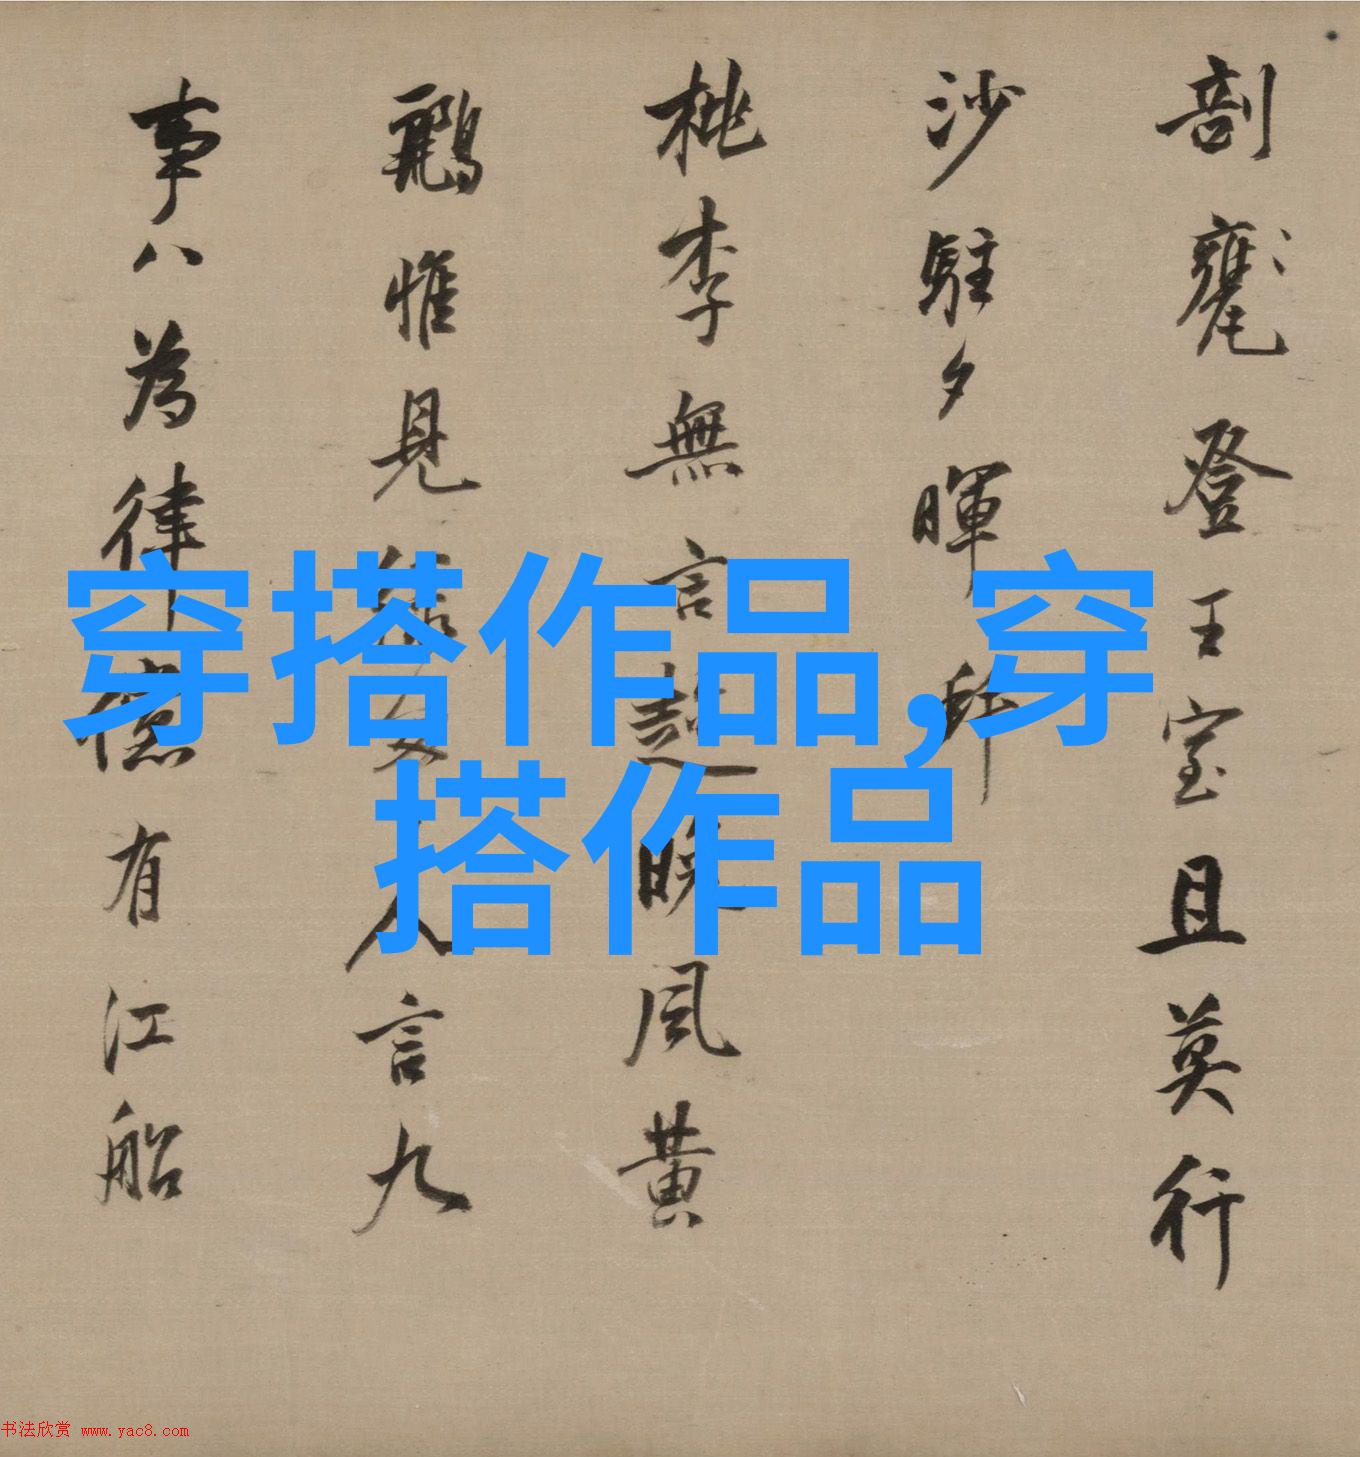 剖甕登王室且莫行
沙駐夕暉
桃李無言超晚風黄
鸝惟見人言九
事八為律有江船
穿搭作品,穿
搭作品
书法欣赏 www.yac8.com